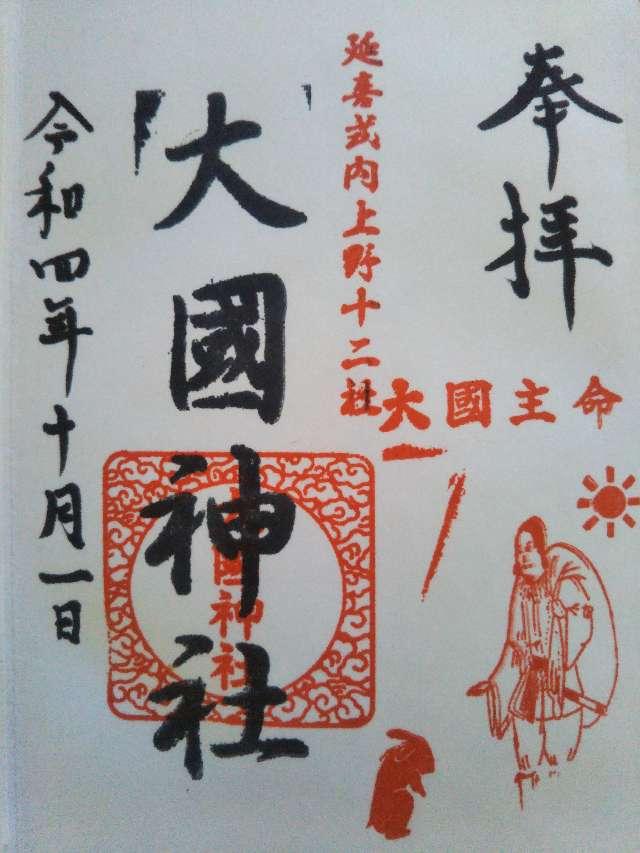 奉拝
延喜式内上野十二社
大國主命
大國神社
國神社
令和四年十月一日